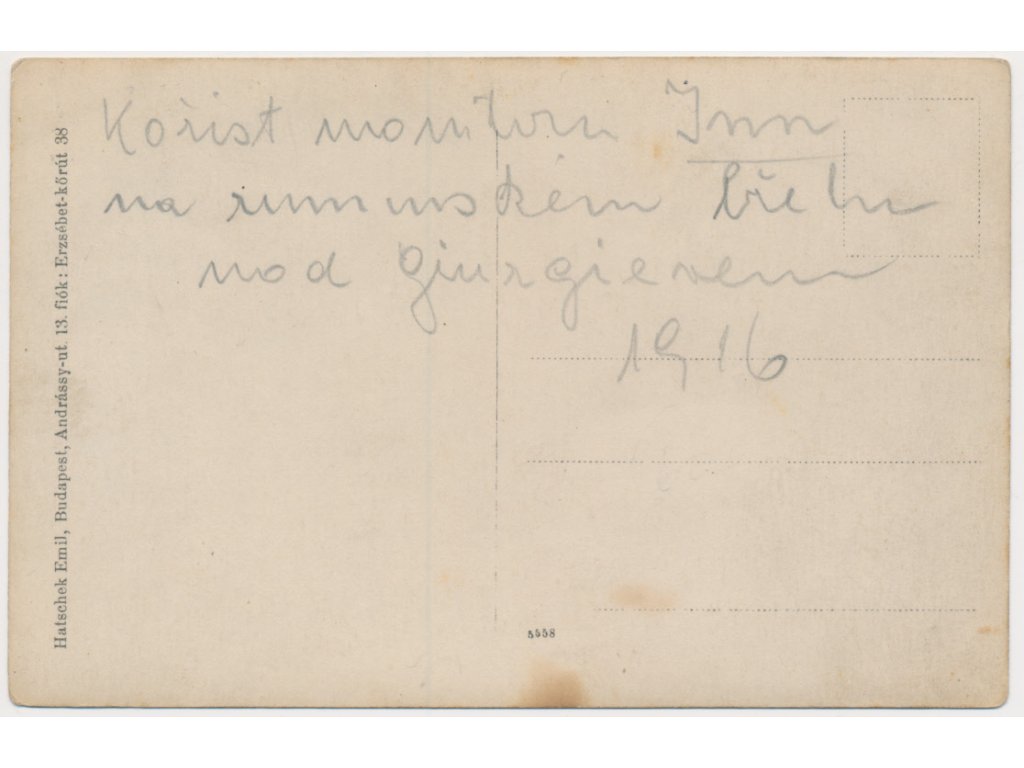 Kořist monitoru Inn
na rumunském břehu
nad Giurgievem
1916
Hatschek Emil, Budapest, Andrássy-ut 13. fiók: Erzsébet-kőrút 38
5558